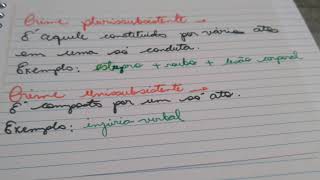 Crime plurissubsistente →
É aquele constituído por vários atos
em uma só conduta.
Exemplo: estupro + roubo + lesão corporal
Crime unissubsistente →
É composto por um só ato.
Exemplo: injúria verbal